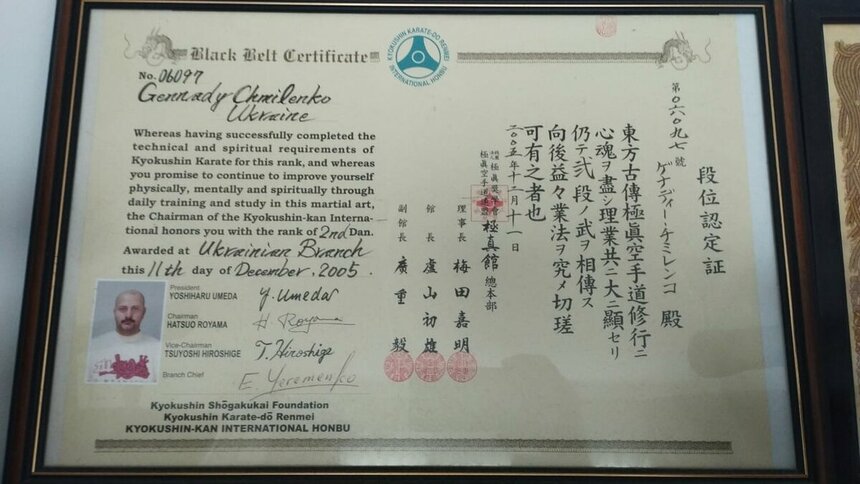 Black Belt Certificate
KYOKUSHIN KARATE-DO RENMEI
INTERNATIONAL HONBU
No. 06097
Gennady Chmilenko
Ukraine
Whereas having successfully completed the
technical and spiritual requirements of
Kyokushin Karate for this rank, and whereas
you promise to continue to improve yourself
physically, mentally and spiritually through
daily training and study in this martial art,
the Chairman of the Kyokushin-kan Interna-
tional honors you with the rank of 2nd Dan.
Awarded at Ukrainian Branch
this 11th day of December, 2005.
President
YOSHIHARU UMEDA Y. Umeda
Chairman
HATSUO ROYAMA H Royama
Vice-Chairman
TSUYOSHI HIROSHIGE T. Hiroshige
Branch Chief E. Yeremenko
Kyokushin Shōgakukai Foundation
Kyokushin Karate-dō Renmei
KYOKUSHIN-KAN INTERNATIONAL HONBU
段位認定証
第〇六〇九七號
ゲナディー・チミレンコ 殿
東方古傳極眞空手道修行ニ
心魂ヲ盡シ理業共ニ大ニ顯セリ
仍テ弐段ノ武ヲ相傳ス
向後益々業法ヲ究メ切瑳
可有之者也
二〇〇五年十二月十一日
極眞奬學會
極眞空手道連盟
極真館 總本部
理事長 梅田嘉明
館長 盧山初雄
副館長 廣重毅